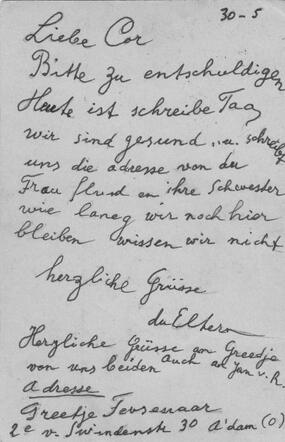 30-5
Liebe Cor
Bitte zu entschuldigen
Heute ist schreibe Tag
wir sind gesund u. schreibt
uns die adresse von der
Frau und an ihre Schwester
wie laneg wir noch hier
bleiben wissen wir nicht
herzliche Grüsse
du Eltern
Herzliche Grüsse an Greedje
von uns beiden auch an Jan v. R.
Adresse
Greetje
2e v. Swindenstr 30 A'dam (O)